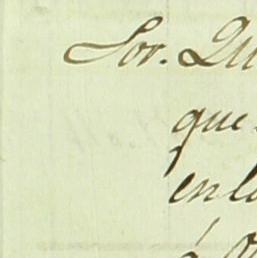 Sor. Qu
que
en lo
á